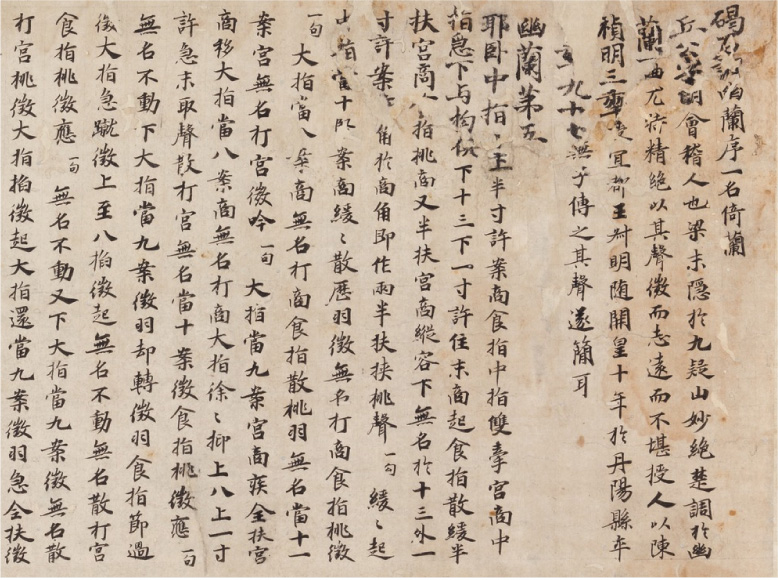 碣石調幽蘭序一名倚蘭
丘公字明會稽人也梁末隱於九疑山妙絕楚調於幽
蘭一曲尤特精絕以其聲微而志遠而不堪授人以陳
禎明三年 宜都王叔明隨開皇十年於丹陽縣卒
九十七無子傳之其聲遂簡耳
幽蘭第五
耶卧中指〻 半寸許案商食指中指雙牽宮商中
指急下与拘俱下十三下一寸許住末商起食指散緩半
扶宮商 指挑商又半扶宮商縱容下無名於十三外一
寸許案 角於商角即作兩半扶挾挑聲一句 緩〻起
指 十 案商緩〻散歷羽徵無名打商食指挑徵
一句 大指當八案商無名打商食指散挑羽無名當十一
案宮無名打宮徵吟一句 大指當九案宮商疾全扶宮
商移大指當八案商無名打商大指徐〻抑上八上一寸
許急末取聲散打宮無名當十案徵食指挑徵應一句
無名不動下大指當九案徵羽却轉徵羽食指節過
徵大指急蹴徵上至八掐徵起無名不動無名散打宮
食指挑徵應一句 無名不動又下大指當九案徵無名散
打宮挑徵大指掐徵起大指還當九案徵羽急全扶徵